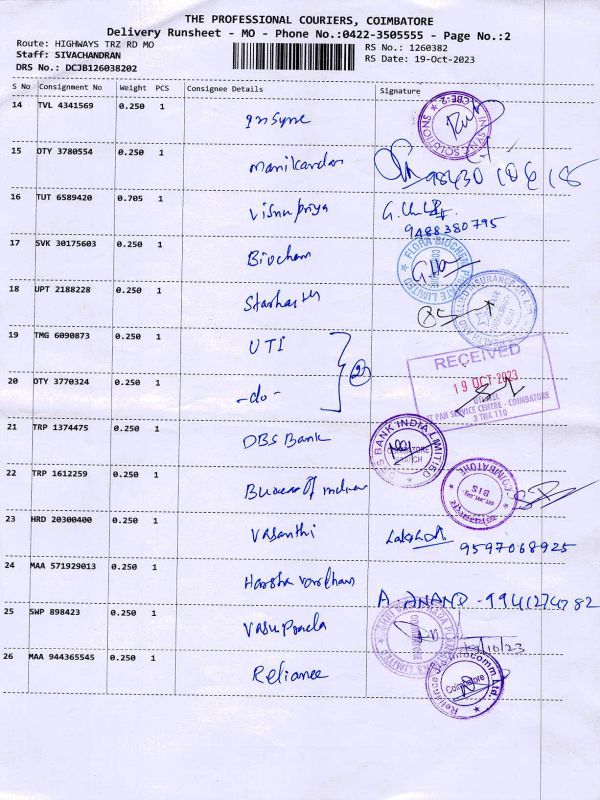 THE PROFESSIONAL COURIERS, COIMBATORE
Delivery Runsheet - MO - Phone No.:0422-3505555 - Page No.:2
Route: HIGHWAYS TRZ RD MO
Staff: SIVACHANDRAN
DRS No.: DCJB126038202
RS No.: 1260382
RS Date: 19-Oct-2023
S No Consignment No Weight PCS Consignee Details Signature
14 TVL 4341569 0.250 1 Insync
IN SYNC SOLUTIONS CBE-2
15 OTY 3780554 0.250 1 Manikandan
16 TUT 6589420 0.705 1 Vishnupriya
9488380795
17 SVK 30175603 0.250 1 Biochem
FLORA BIOCHEM PRIVATE LIMITED
18 UPT 2188228 0.250 1 Starhealth
19 TMG 6090873 0.250 1 UTI
2
RECEIVED
19 OCT 2023
PAN SERVICE CENTRE - COIMBATORE
3 TNA 110
20 OTY 3770324 0.250 1 -do-
21 TRP 1374475 0.250 1 DBS Bank
DBS BANK INDIA LIMITED
COIMBATORE
BRANCH
22 TRP 1612259 0.250 1 Bureau Of Indian
COIMBATORE
BIS
23 HRD 20300400 0.250 1 Vasanthi
9597068925
24 MAA 571929013 0.250 1 Harsha vardhan
A. ANAND - 9941274782
25 SWP 898423 0.250 1
COIMBATORE
26 MAA 944365545 0.250 1 Reliance
Reliance Jio Infocomm Ltd.
Coimbatore